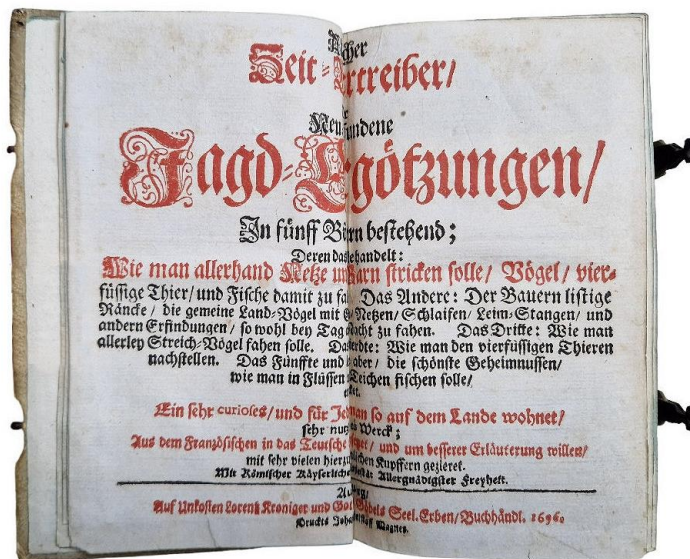 Zeit-Vertreiber/
Neu
Jagd-Ergötzungen/
In fünff bestehend;
Deren
Wie man allerhand Netze stricken solle/ Vögel/ vier-
füssige Thier/ und Fische damit zu Das Andere: Der Bauern listige
Räncke / die gemeine Land-Vögel mit Netzen/ Schlaifen/ Leim-Stangen/ und
andern Erfindungen/ so wohl bey Tag Nacht zu fahen. Das Dritte: Wie man
allerley Streich-Vögel fahen solle. Wie man den vierfüssigen Thieren
nachstellen. Das Fünffte und aber/ die schönste Geheimnussen/
wie man in Flüssen Teichen fischen solle/
Ein sehr curioses/ und für so auf dem Lande wohnet/
sehr Werck;
Aus dem Französischen in das Teutsche und um besserer Erläuterung willen/
mit sehr vielen Kupffern gezieret.
Mit Römischer Käyserlicher Allergnädigster Freyheit.
Auf Unkosten Lorentz Kroniger und Göbels Seel. Erben/ Buchhändl. 1696.
Druckts Wagner.